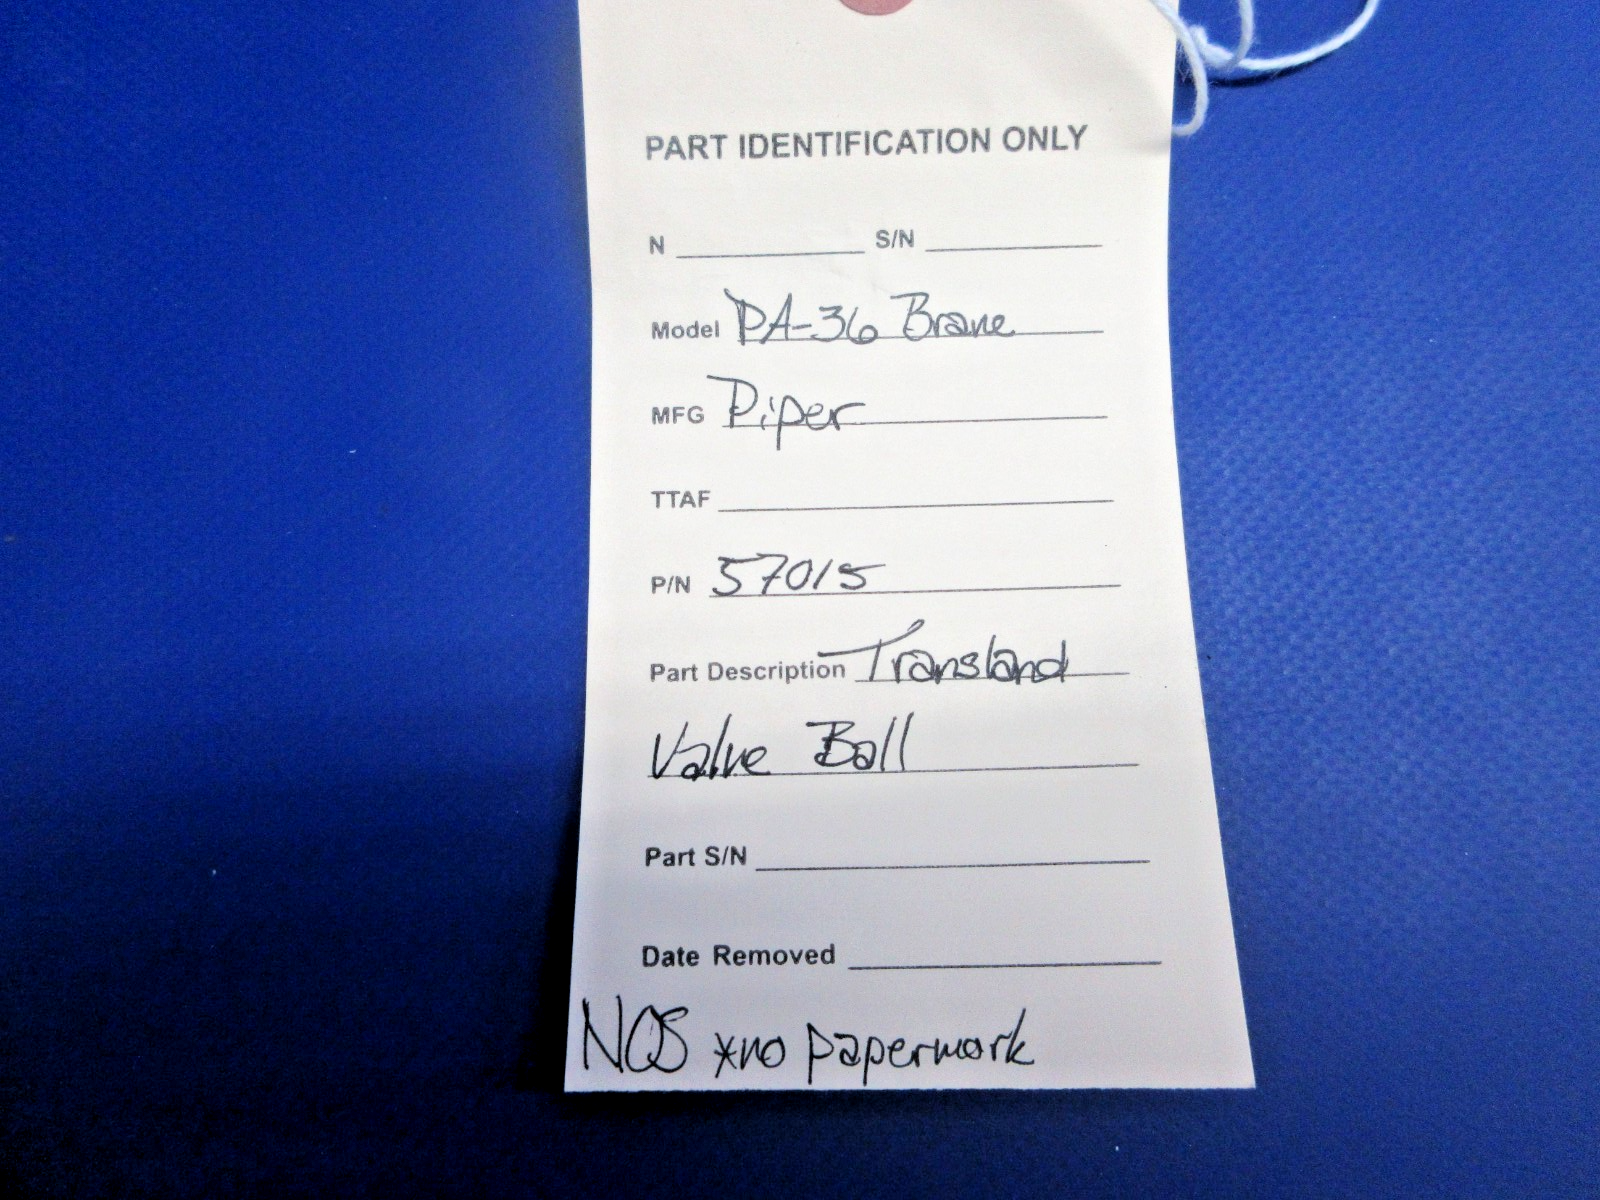 PART IDENTIFICATION ONLY
N S/N
Model PA-36 Brave
MFG Piper
TTAF
P/N 57015
Part Description Transland
Valve Ball
Part S/N
Date Removed
NOS *no paperwork